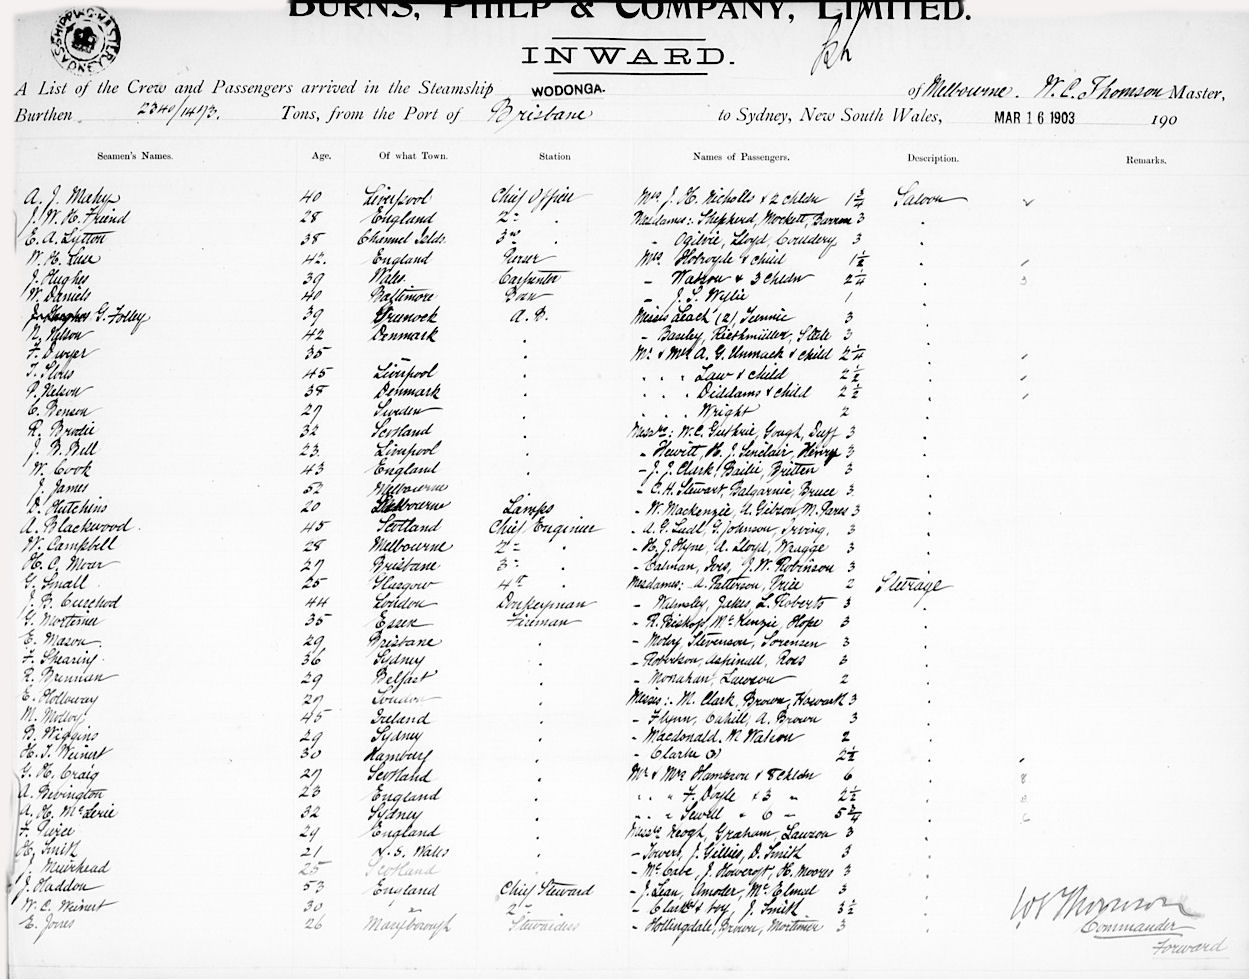 BURNS, PHILP & COMPANY, LIMITED.
INWARD.
A List of the Crew and Passengers arrived in the Steamship WODONGA. of Melbourne. W. C. Thomson Master,
Burthen 2340/1473. Tons, from the Port of Brisbane to Sydney, New South Wales, MAR 16 1903 190
Seamen's Names. Age. Of what Town. Station Names of Passengers. Description. Remarks.
A. J. 40 Liverpool Chief Officer Mrs J. H. Nicholls & 2 chldn 1 3/4 Saloon
J. W. H. Friend 28 England 2nd " Mesdames: Shepherd, Mockett, 3
E. A. Lytton 38 Channel Islds. 3rd " - Ogilvie, Lloyd, Couldery 3
W. H. 42 England Purser Mrs Holroyde & child 1 1/2
J. Hughes 39 Wales Carpenter - Watson & 3 chldn 2 1/4
W. Daniels 40 Baltimore Bosn - J. S. Wylie 1
G. Folley 39 Greenock A. B. Misses Leach (2) 3
N. Nelson 42 Denmark " - Baseley, Riethmüller, Steele 3
F. Dwyer 35 - " Mr & Mrs A. G. Unmack & child 2 1/4
T. 45 Liverpool " " " " Law & child 2 1/2
P. Nelson 38 Denmark " " " " Diddams & child 2 1/2
C. Benson 27 Sweden " " " " Wright 2
R. Brodie 32 Scotland " Messrs: W. C. Guthrie, Gough, Duff 3
J. B. Bell 23 Liverpool " - Hewitt, H. J. Sinclair, Henry 3
W. Cook 43 England " - J. J. Clark, Bailie, Britten 3
J. James 52 Melbourne " - C. H. Stewart, Balgarnie, Bruce 3
D. Hutchins 20 Melbourne Lamps - W. Mackenzie, A. Gibson, M. 3
A. Blackwood 45 Scotland Chief Engineer - A. G. Ludl, G. Johnson, Irving 3
W. Campbell 28 Melbourne 2nd " - H. J. Hyne, A. Lloyd, Wragge 3
H. C. Moar 27 Brisbane 3rd " - Calman, Ives, J. W. Robinson 3
G. Small 25 Glasgow 4th " Mesdames: A. Patterson, Price 2 Steerage
J. B. Curchod 44 London Donkeyman - Walmsley, Jakes, L. Roberts 3
G. Mortimer 35 Essex Fireman - R. Biskop, McKenzie, Hope 3
E. Mason 29 Brisbane " - Moley, Stevenson, Sorensen 3
F. Shearing 36 Sydney " - Robertson, Aspinall, Ross 3
R. Brennan 29 Belfast " - Monahan, Lawson 2
E. Holloway 27 London " Misses: M. Clark, Brown, Howarth 3
M. Molloy 45 Ireland " - Flynn, Cahill, A. Brown 3
B. Wiggins 29 Sydney " - Macdonald, M. Watson 2
H. T. Weinert 30 Hamburg " - Clarke (3) 2 1/2
G. H. Craig 27 Scotland " Mr & Mrs Hampson & 8 chldn 6
A. Bevington 23 England " " " " F. Doyle & 3 " 2 1/2
A. H. McLerie 32 Sydney " " " " Sewell " 6 " 5 3/4
F. Peirce 29 England " Messrs Keogh, Graham, Lawson 3
H. Smith 21 N. S. Wales " - Towers, J. Gillies, D. Smith 3
J. Muirhead 25 Scotland " - McCabe, J. Howcroft, H. Moores 3
J. Haddon 53 England Chief Steward - J. Lean, Amoder, McElmel 3
W. C. Weinert 30 " 2nd " - Clarke & boy, J. Smith 3 1/2
E. Jones 26 Maryborough Stewardess - Hollingdale, Brown, Mortimer 3
Commander
Forward